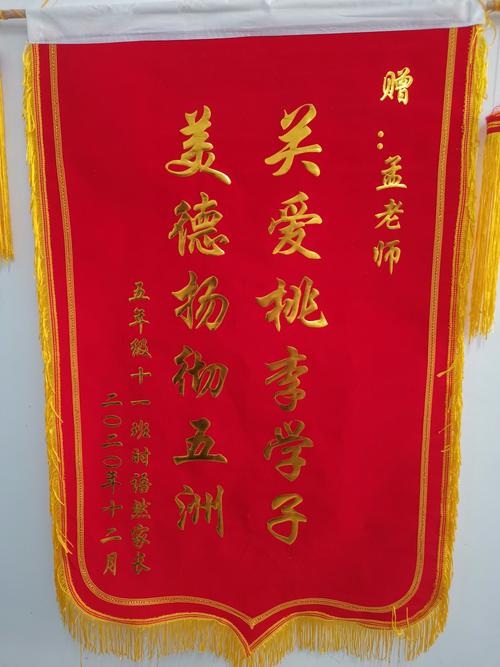 赠：孟老师
关爱桃李学子
美德扬彻五洲
五年级十一班时语然家长
二〇二〇年十二月